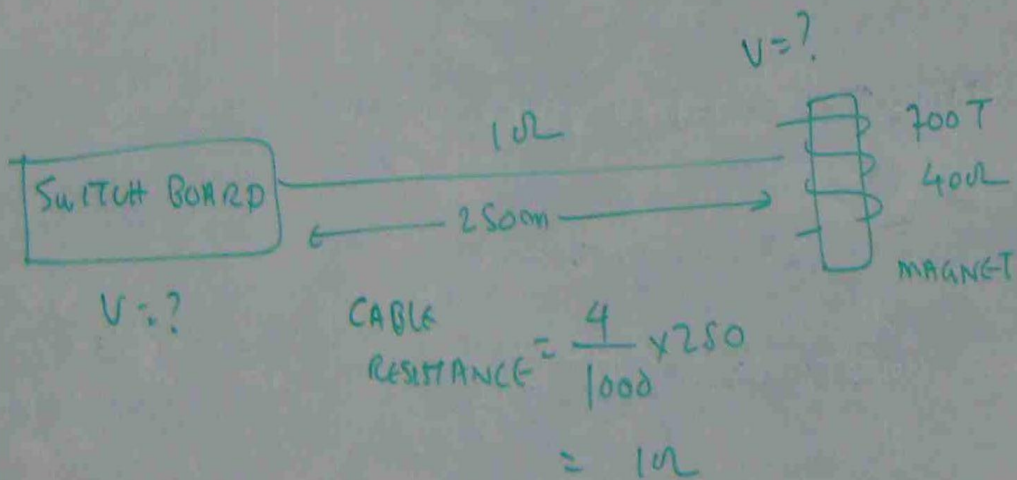 V=?
1Ω
700T
SWITCH BOARD
40Ω
250m
MAGNET
V=?
CABLE RESISTANCE = 4/1000 x 250
= 1Ω